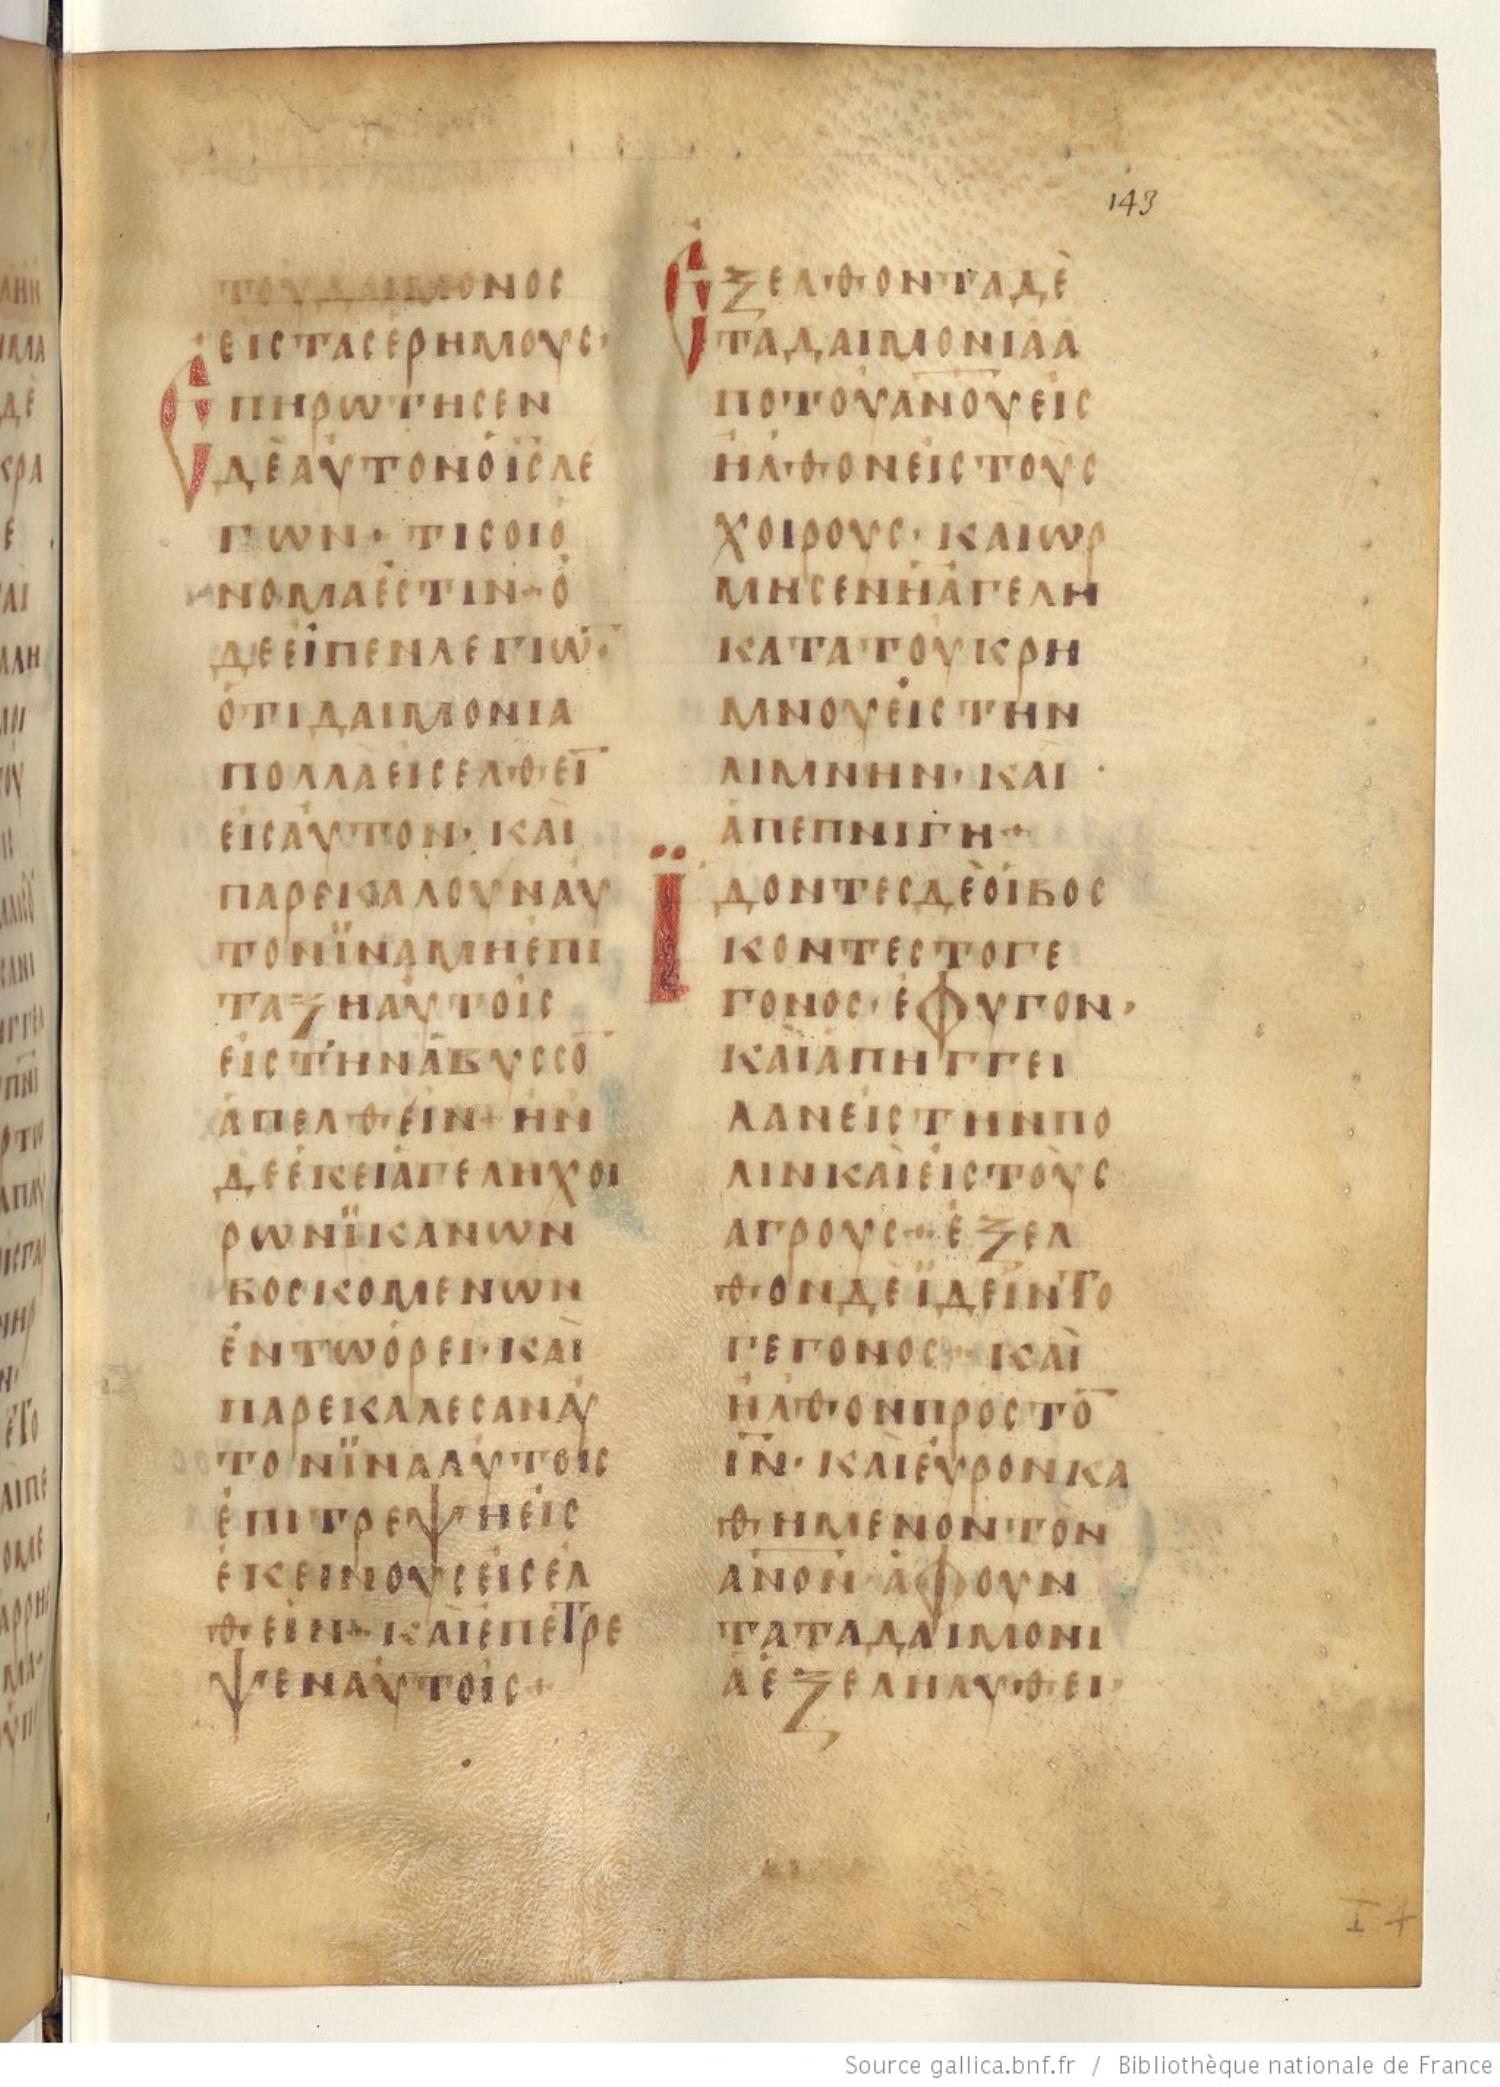 143
ΤΟΥΔΑΙΜΟΝΟΣ
ΕΙΣΤΑΣΕΡΗΜΟΥΣ·
ΕΠΗΡΩΤΗΣΕΝ
ΔΕΑΥΤΟΝΟΙ̅Σ̅ΛΕ
ΓΩΝ· ΤΙΣΟΙΟ
ΝΟΜΑΕΣΤΙΝ+Ο
ΔΕΕΙΠΕΝΛΕΓΙΩ̅·
ΟΤΙΔΑΙΜΟΝΙΑ
ΠΟΛΛΑΕΙΣΕΛΘΕΙ̅
ΕΙΣΑΥΤΟΝ· ΚΑΙ
ΠΑΡΕΚΑΛΟΥΝΑΥ
ΤΟΝΪΝΑΜΗΕΠΙ
ΤΑΞΗΑΥΤΟΙΣ
ΕΙΣΤΗΝΑΒΥΣΣΟ̅
ΑΠΕΛΘΕΙΝ+ΗΝ
ΔΕΕΚΕΙΑΓΕΛΗΧΟΙ
ΡΩΝΪΚΑΝΩΝ
ΒΟΣΚΟΜΕΝΩΝ
ΕΝΤΩΟΡΕΙ·ΚΑΙ
ΠΑΡΕΚΑΛΕΣΑΝΑΥ
ΤΟΝΪΝΑΑΥΤΟΙΣ
ΕΠΙΤΡΕΨΗΕΙΣ
ΕΚΕΙΝΟΥΣΕΙΣΕΛ
ΘΕΙΝ+ΚΑΙΕΠΕΤΡΕ
ΨΕΝΑΥΤΟΙΣ+
ΕΞΕΛΘΟΝΤΑΔΕ
ΤΑΔΑΙΜΟΝΙΑΑ
ΠΟΤΟΥΑ̅Ν̅Ο̅Υ̅ΕΙΣ
ΗΛΘΟΝΕΙΣΤΟΥΣ
ΧΟΙΡΟΥΣ· ΚΑΙΩΡ
ΜΗΣΕΝΗΑΓΕΛΗ
ΚΑΤΑΤΟΥΚΡΗ
ΜΝΟΥΕΙΣΤΗΝ
ΛΙΜΝΗΝ· ΚΑΙ
ΑΠΕΠΝΙΓΗ+
ΪΔΟΝΤΕΣΔΕΟΙΒΟΣ
ΚΟΝΤΕΣΤΟΓΕ
ΓΟΝΟΣ·ΕΦΥΓΟΝ·
ΚΑΙΑΠΗΓΓΕΙ
ΛΑΝΕΙΣΤΗΝΠΟ
ΛΙΝΚΑΙΕΙΣΤΟΥΣ
ΑΓΡΟΥΣ+ΕΞΕΛ
ΘΟΝΔΕΪΔΕΙΝΤΟ
ΓΕΓΟΝΟΣ· ΚΑΙ
ΗΛΘΟΝΠΡΟΣΤΟ̅
Ι̅Ν̅· ΚΑΙΕΥΡΟΝΚΑ
ΘΗΜΕΝΟΝΤΟΝ
Α̅Ν̅Ο̅Ν̅ΑΦΟΥΝ
ΤΑΤΑΔΑΙΜΟΝΙ
ΑΕΞΕΛΗΛΥΘΕΙ·
Source gallica.bnf.fr / Bibliothèque nationale de France